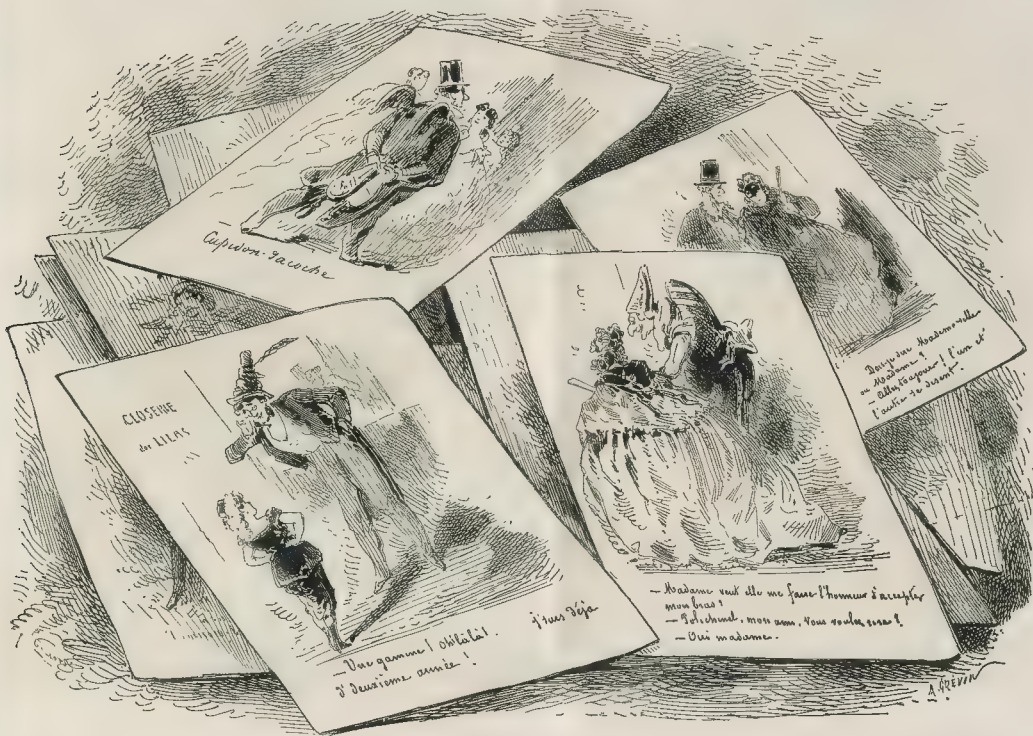 Cupidon-Sacoche
Dois-je dire Mademoiselle
ou Madame?
– Allez toujours! l'un et
l'autre se disent.
CLOSERIE
des LILAS
– Une gamine! oh! là là! j'suis déjà
d'deuxième année!
– Madame veut elle me faire l'honneur d'accepter
mon bras?
– Polichinel, mon ami, vous voulez rire!
– Oui madame.
A. GRÉVIN